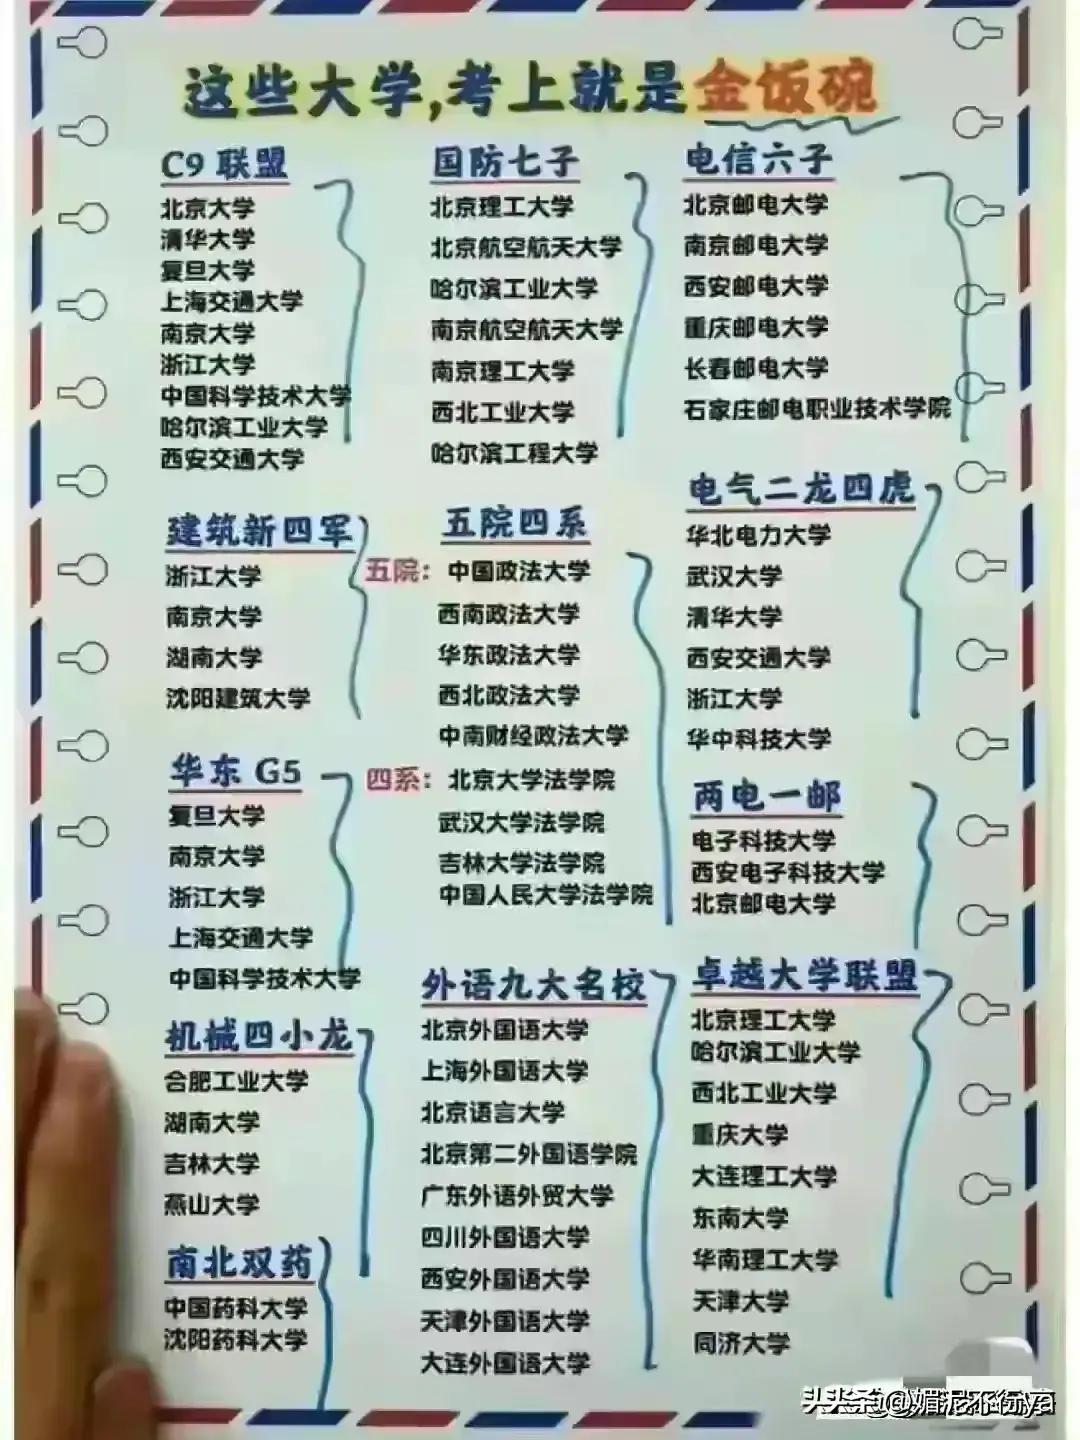 这些大学,考上就是金饭碗
C9 联盟
北京大学
清华大学
复旦大学
上海交通大学
南京大学
浙江大学
中国科学技术大学
哈尔滨工业大学
西安交通大学
国防七子
北京理工大学
北京航空航天大学
哈尔滨工业大学
南京航空航天大学
南京理工大学
西北工业大学
哈尔滨工程大学
电信六子
北京邮电大学
南京邮电大学
西安邮电大学
重庆邮电大学
长春邮电大学
石家庄邮电职业技术学院
建筑新四军
浙江大学
南京大学
湖南大学
沈阳建筑大学
五院四系
五院: 中国政法大学
西南政法大学
华东政法大学
西北政法大学
中南财经政法大学
四系: 北京大学法学院
武汉大学法学院
吉林大学法学院
中国人民大学法学院
电气二龙四虎
华北电力大学
武汉大学
清华大学
西安交通大学
浙江大学
华中科技大学
华东 G5
复旦大学
南京大学
浙江大学
上海交通大学
中国科学技术大学
两电一邮
电子科技大学
西安电子科技大学
北京邮电大学
机械四小龙
合肥工业大学
湖南大学
吉林大学
燕山大学
外语九大名校
北京外国语大学
上海外国语大学
北京语言大学
北京第二外国语学院
广东外语外贸大学
四川外国语大学
西安外国语大学
天津外国语大学
大连外国语大学
卓越大学联盟
北京理工大学
哈尔滨工业大学
西北工业大学
重庆大学
大连理工大学
东南大学
华南理工大学
天津大学
同济大学
南北双药
中国药科大学
沈阳药科大学
头条@媚泥不行ya